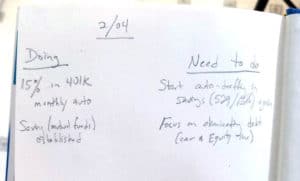 2/04
Doing
15% in 401K
monthly auto
Savings (mutual funds)
established
Need to do
Start auto-drafts in
savings (529/
Focus on eliminating debt
(car & Equity